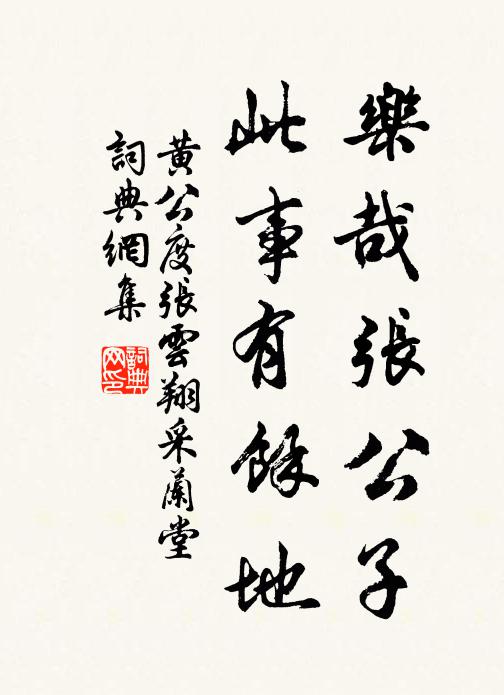 樂哉張公子
此事有餘地
黃公度張雲翔采蘭堂
詞典網集
詞典網印